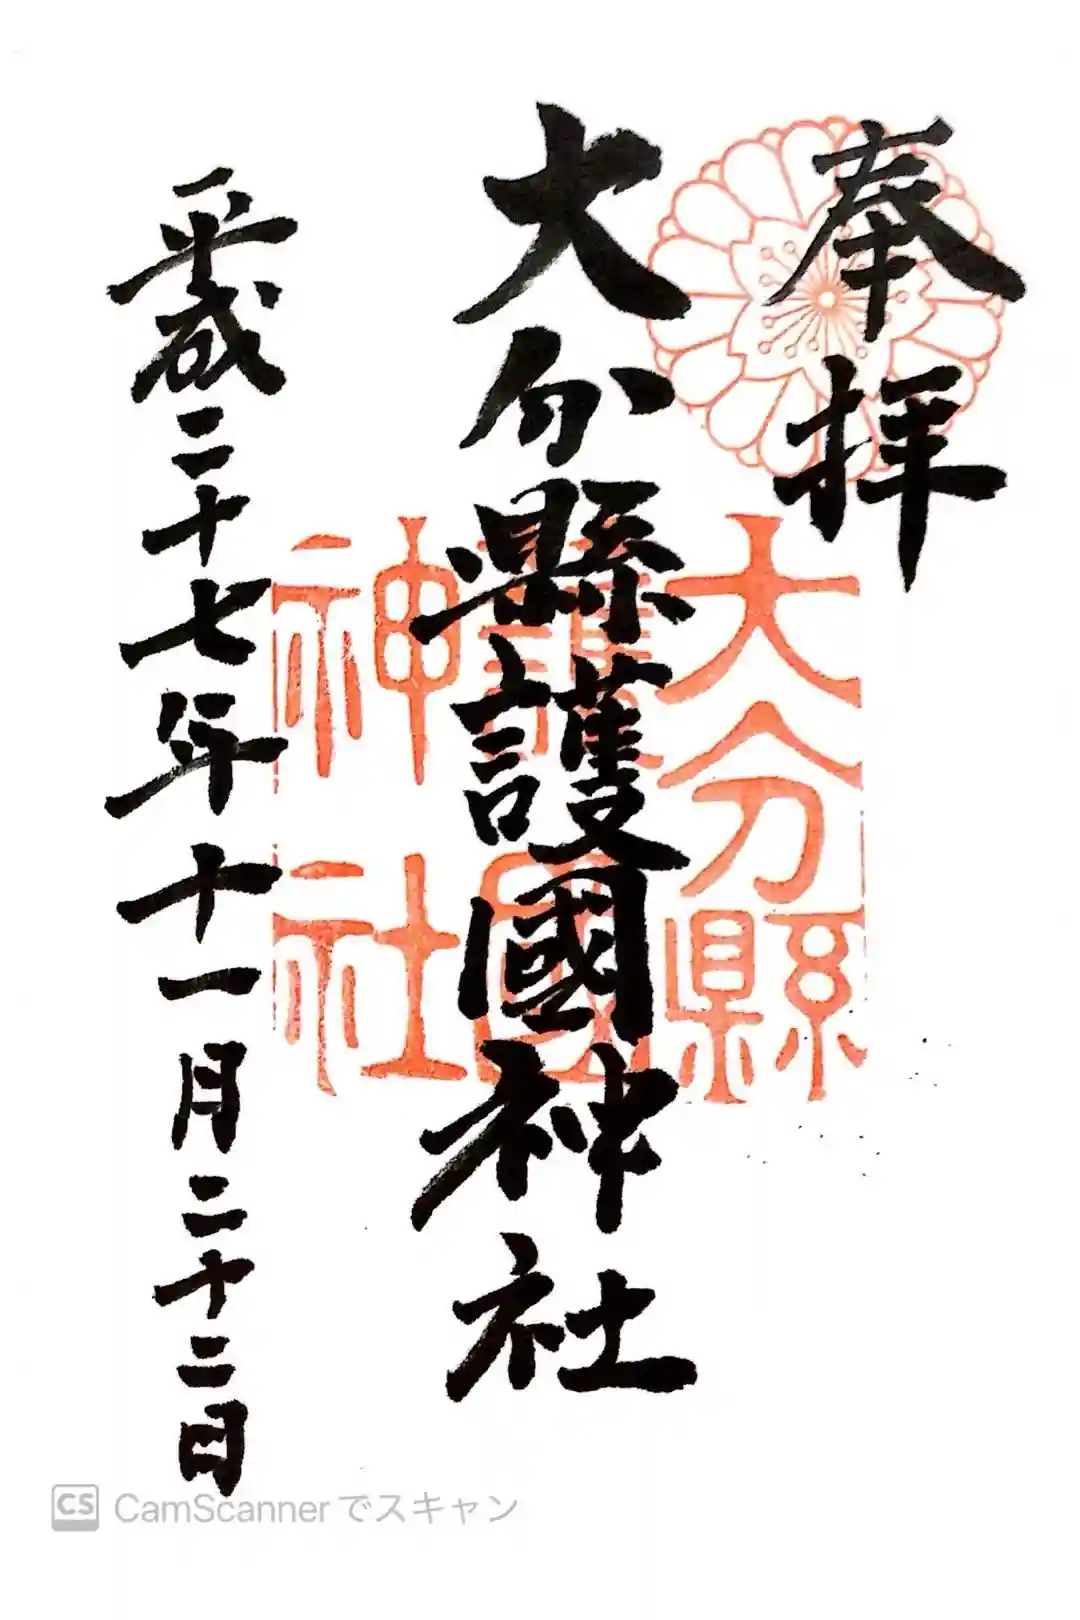 奉拝
大分縣護國神社
平成二十七年十一月二十二日
大分縣
護國
神社
CS CamScannerでスキャン